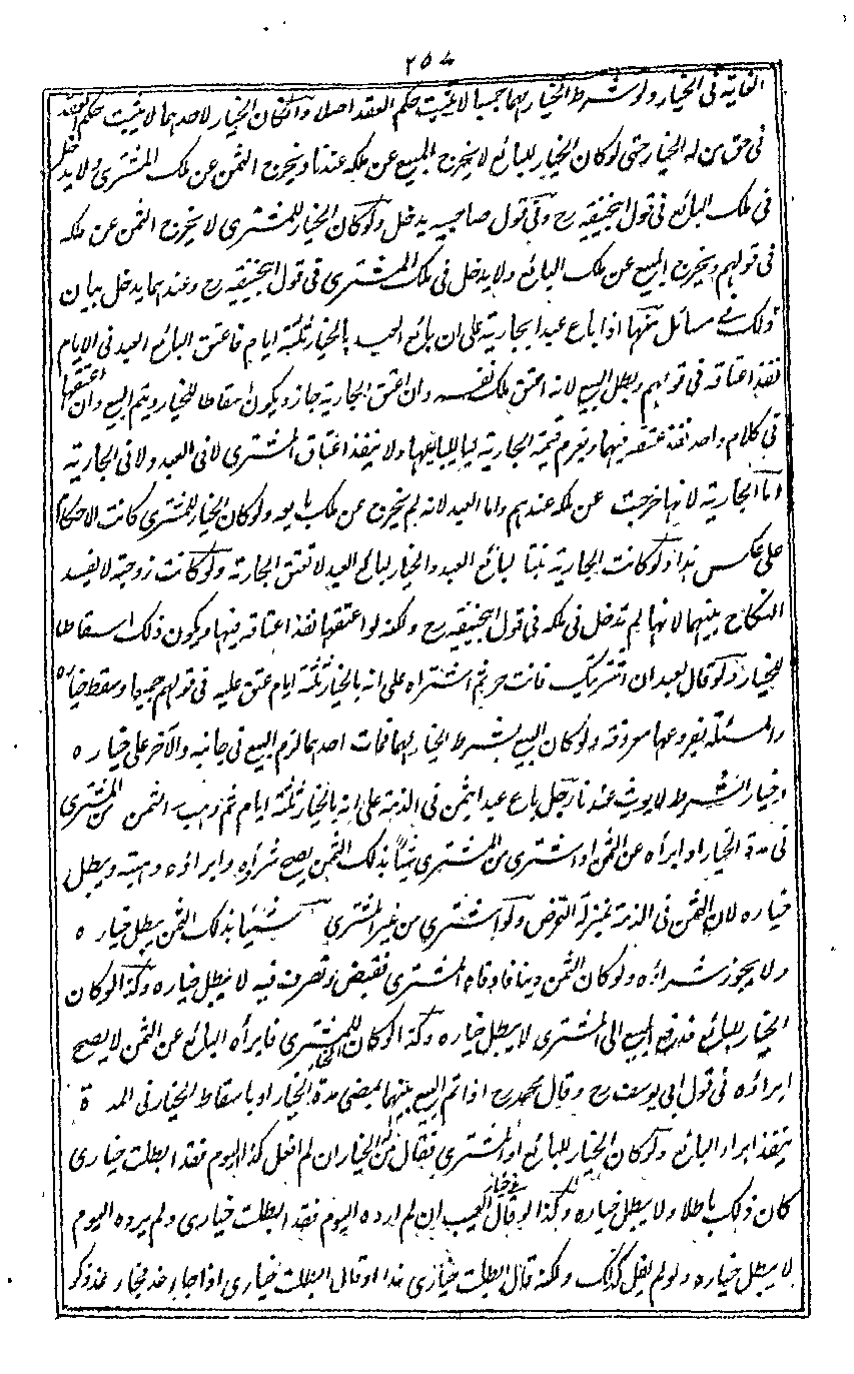 ٢٥٤
الغاية في الخيار ولو شرط الخيار لهما جميعا لا يثبت حكم العقد اصلا وان كان الخيار لاحدهما لا يثبت حكم العقد
في حق من له الخيار حتى لو كان الخيار للبائع لا يخرج المبيع عن ملكه عندنا ويخرج الثمن عن ملك المشتري ولا يدخل
في ملك البائع في قول ابيحنيفة رح وفي قول صاحبيه يدخل ولو كان الخيار للمشتري لا يخرج الثمن عن ملكه
في قولهم ويخرج المبيع عن ملك البائع ولا يدخل في ملك المشتري في قول ابيحنيفة رح وعندهما يدخل بيان
ذلك في مسائل منها اذا باع عبدا بجارية على ان بائع العبد بالخيار ثلثة ايام فاعتق البائع العبد في الايام
نفذ اعتاقه في قولهم وبطل البيع لانه اعتق ملك نفسه وان اعتق الجارية جاز ويكون اسقاطا للخيار ويتم البيع وان اعتقهما
في كلام واحد نفذ عتقه فيهما ويغرم قيمة الجارية لبائعها ولا ينفذ اعتاق المشتري لا في العبد ولا في الجارية
اما الجارية لانها خرجت عن ملكه عندهم واما العبد لانه لم يخرج عن ملك بائعه ولو كان الخيار للمشتري كانت الاحكام
على عكس هذا ولو كانت الجارية بنتا لبائع العبد والخيار لبائع العبد لا تعتق الجارية ولو كانت زوجته لا يفسد
النكاح بينهما لانها لم تدخل في ملكه في قول ابيحنيفة رح ولكنه لو اعتقها نفذ اعتاقه فيها ويكون ذلك اسقاطا
للخيار ولو قال لعبد ان اشتريتك فانت حر ثم اشتراه على انه بالخيار ثلثة ايام عتق عليه في قولهم جميعا وسقط خياره
والمسئلة بفروعها معروفة ولو كان البيع بشرط الخيار لهما فمات احدهما لزم البيع في جانبه والآخر على خياره
وخيار الشرط لا يورث عندنا رجل باع عبدا بثمن في الذمة على انه بالخيار ثلثة ايام ثم وهب الثمن من المشتري
في مدة الخيار او ابرأه عن الثمن او اشترى من المشتري شيئا بذلك الثمن يصح شراؤه وابراؤه وهبته ويبطل
خياره لان الثمن في الذمة بمنزلة القرض ولو اشترى من غير المشتري شيئا بذلك الثمن يبطل خياره
ولا يجوز شراؤه ولو كان الثمن دينا فاوفاه المشتري فقبض وتصرف فيه لا يبطل خياره وكذا لو كان
الخيار للبائع فدفع المبيع الى المشتري لا يبطل خياره وكذا لو كان الخيار للمشتري فابرأه البائع عن الثمن لا يصح
ابراؤه في قول ابي يوسف رح وقال محمد رح اذا تم البيع بينهما بمضي مدة الخيار او باسقاط الخيار في المدة
ينفذ ابراء البائع ولو كان الخيار للبائع او المشتري فقال من له الخيار ان لم افعل كذا اليوم فقد ابطلت خياري
كان ذلك باطلا ولا يبطل خياره وكذا لو قال في خيار العيب ان لم ارده اليوم فقد ابطلت خياري ولم يرده اليوم
لا يبطل خياره ولو لم يقل كذلك ولكنه قال ابطلت خياري غدا او قال ابطلت خياري اذا جاء غد فجاء غد ذكر